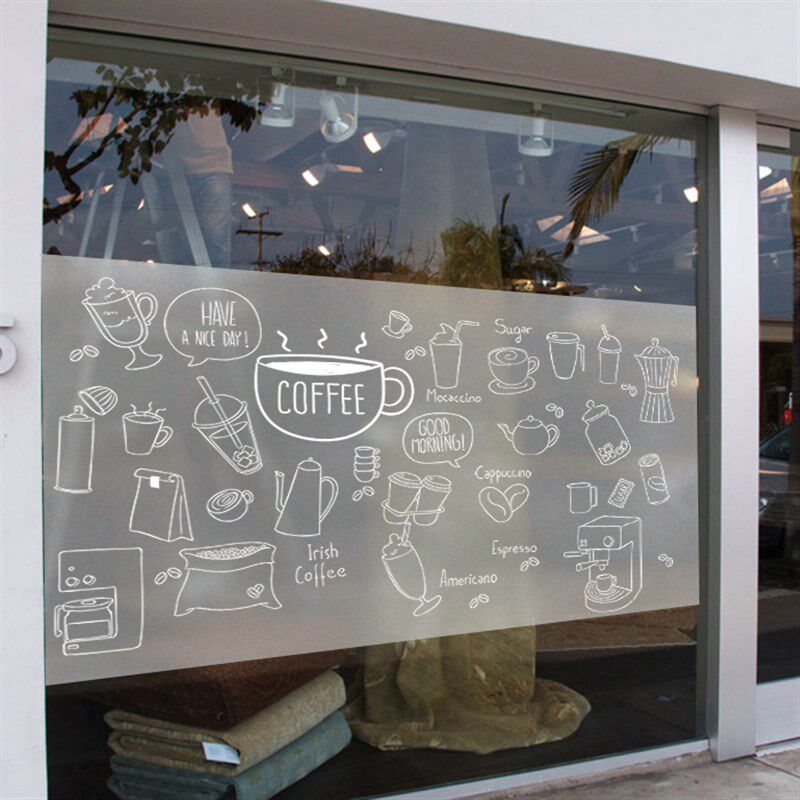 HAVE
A NICE DAY!
COFFEE
Sugar
Mocaccino
GOOD
MORNING!
Cappuccino
Irish
Coffee
Espresso
Americano
5